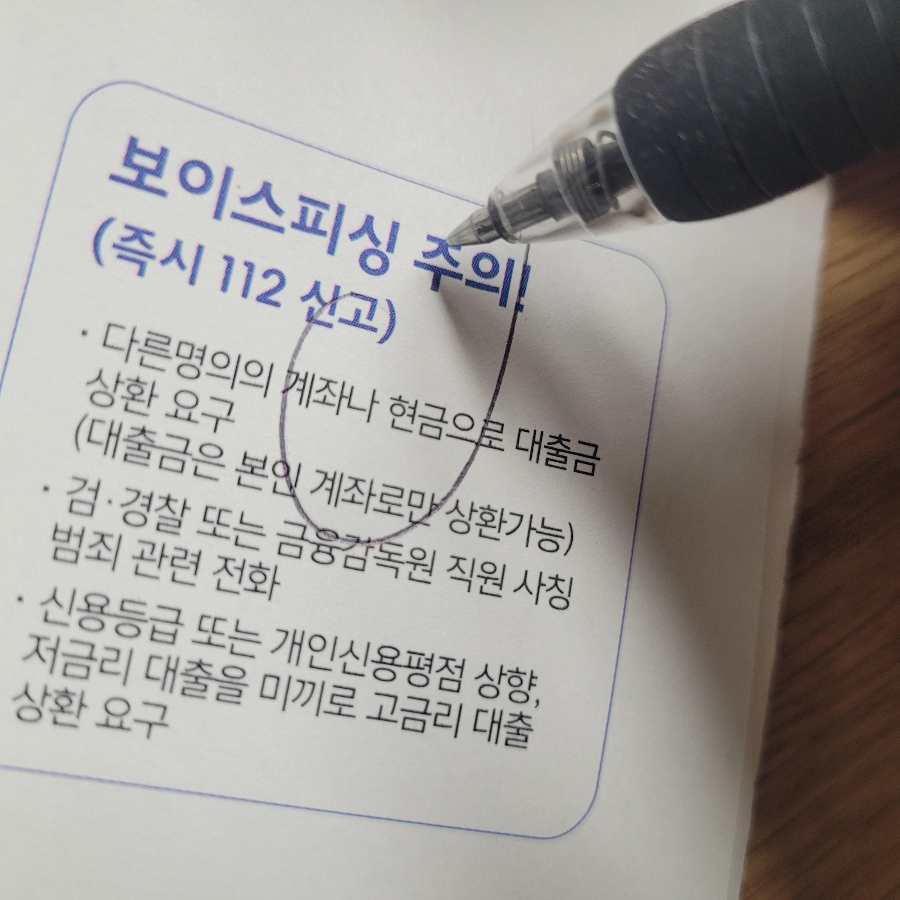 보이스피싱 주의!
(즉시 112 신고)
· 다른명의의 계좌나 현금으로 대출금
상환 요구
(대출금은 본인 계좌로만 상환가능)
· 검·경찰 또는 금융감독원 직원 사칭
범죄 관련 전화
· 신용등급 또는 개인신용평점 상향,
저금리 대출을 미끼로 고금리 대출
상환 요구